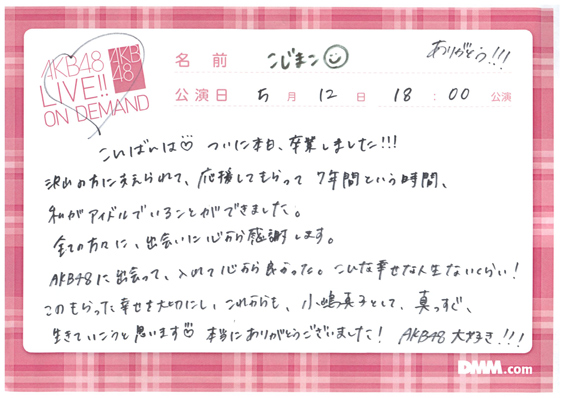 AKB48
LIVE!!
ON DEMAND
AKB
48
名前 こじまこ
ありがとう!!!
公演日 5月12日 18:00公演
こんばんは ついに本日、卒業しました!!!
沢山の方に支えられて、応援してもらって 7年間という時間、
私がアイドルでいることができました。
全ての方々に、出会いに心から感謝します。
AKB48に出会って、入れて心から良かった。こんな幸せな人生ないくらい!
このもらった幸せを大切にし、これからも、小嶋真子として、真っすぐ、
生きていこうと思います 本当にありがとうございました! AKB48 大好き!!!
DMM.com